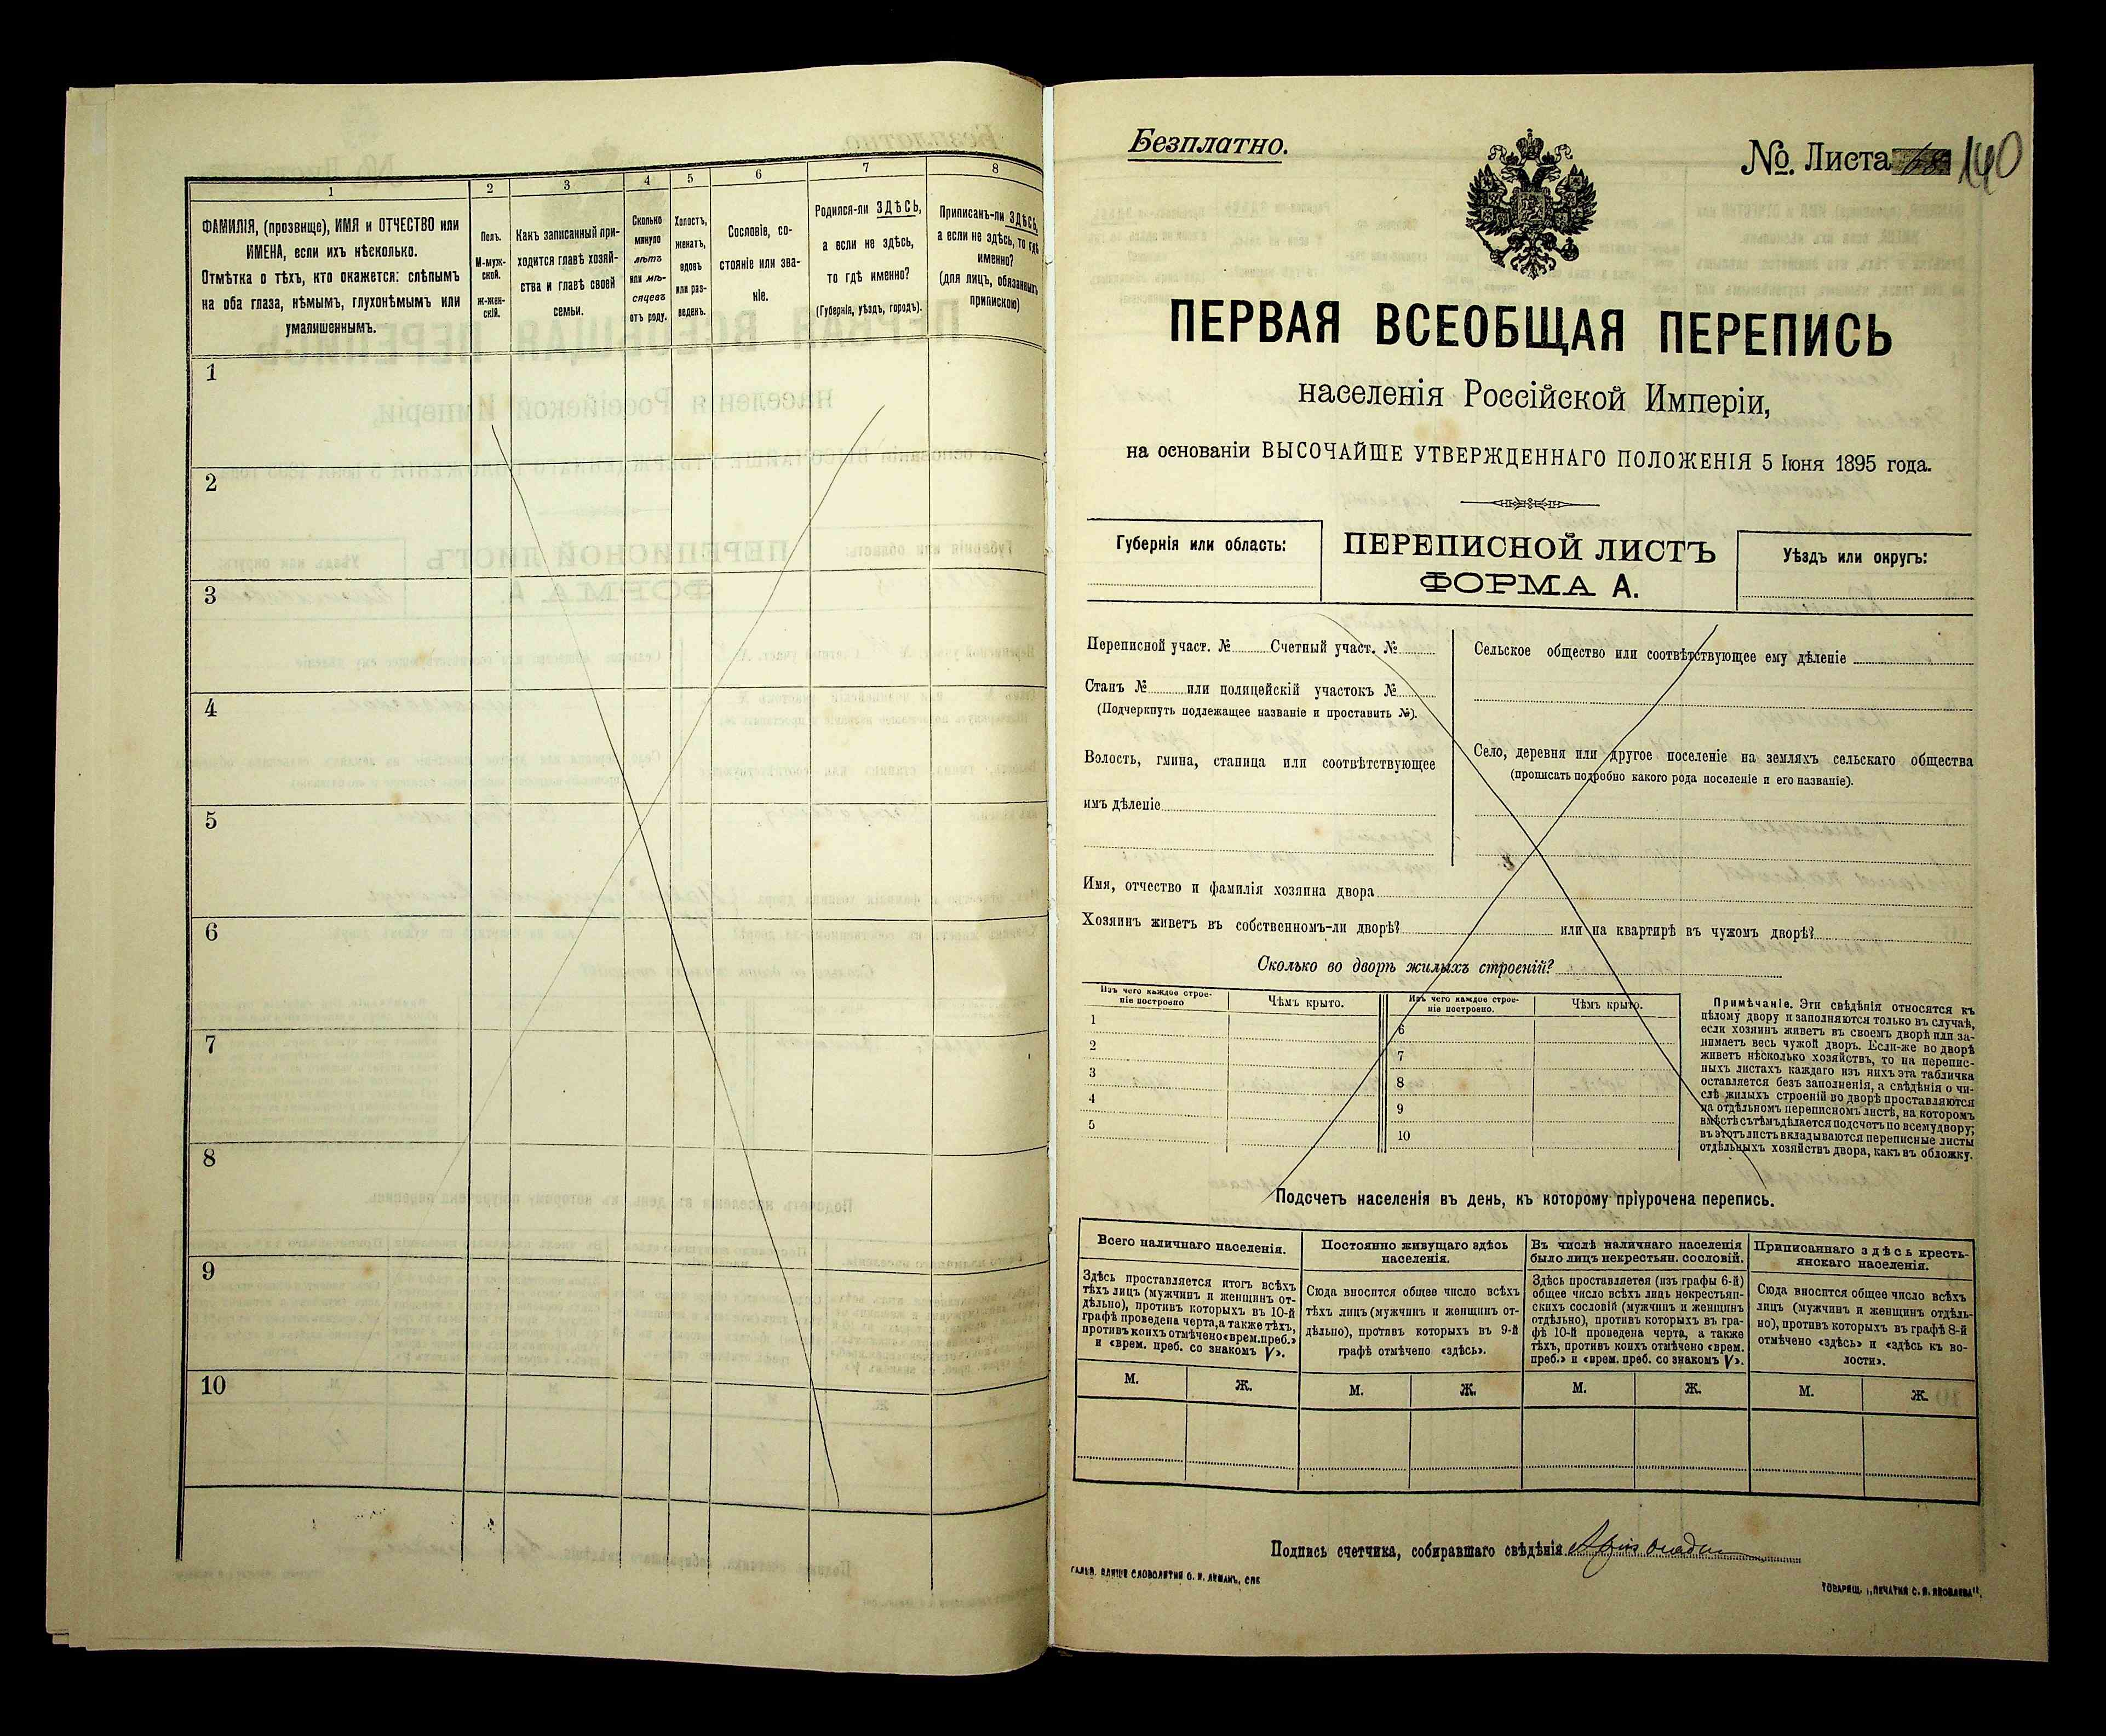 1
2
3
4
5
6
7
8
ФАМИЛІЯ, (прозвище), ИМЯ и ОТЧЕСТВО или
ИМЕНА, если ихъ нѣсколько.
Отмѣтка о тѣхъ, кто окажется: слѣпымъ
на оба глаза, нѣмымъ, глухонѣмымъ или
умалишеннымъ.
Полъ.
М-муж-
ской.
ж-жен-
скій.
Какъ записанный при-
ходится главѣ хозяй-
ства и главѣ своей
семьи.
Сколько
минуло
лѣтъ
или мѣ-
сяцевъ
отъ роду.
Холостъ,
женатъ,
вдовъ
или раз-
веденъ.
Сословіе, со-
стояніе или зва-
ніе.
Родился-ли ЗДѢСЬ,
а если не здѣсь,
то гдѣ именно?
(Губернія, уѣздъ, городъ).
Приписанъ-ли ЗДѢСЬ,
а если не здѣсь, то гдѣ
именно?
(для лицъ, обязанныхъ
припискою)
1
2
3
4
5
6
7
8
9
10
Безплатно.
№. Листа 68 140
ПЕРВАЯ ВСЕОБЩАЯ ПЕРЕПИСЬ
населенія Россійской Имперіи,
на основаніи ВЫСОЧАЙШЕ УТВЕРЖДЕННАГО ПОЛОЖЕНІЯ 5 Іюня 1895 года.
Губернія или область:
ПЕРЕПИСНОЙ ЛИСТЪ
ФОРМА А.
Уѣздъ или округъ:
Переписной участ. № Счетный участ. №
Станъ № или полицейскій участокъ №
(Подчеркнуть подлежащее названіе и проставить №).
Волость, гмина, станица или соотвѣтствующее
имъ дѣленіе
Сельское общество или соотвѣтствующее ему дѣленіе
Село, деревня или другое поселеніе на земляхъ сельскаго общества
(прописать подробно какого рода поселеніе и его названіе).
Имя, отчество и фамилія хозяина двора
Хозяинъ живетъ въ собственномъ-ли дворѣ? или на квартирѣ въ чужомъ дворѣ?
Сколько во дворѣ жилыхъ строеній?
Изъ чего каждое строе-
ніе построено
Чѣмъ крыто.
Изъ чего каждое строе-
ніе построено.
Чѣмъ крыто.
1
2
3
4
5
6
7
8
9
10
Примѣчаніе. Эти свѣдѣнія относятся къ
цѣлому двору и заполняются только въ случаѣ,
если хозяинъ живетъ въ своемъ дворѣ или за-
нимаетъ весь чужой дворъ. Если-же во дворѣ
живетъ нѣсколько хозяйствъ, то на перепис-
ныхъ листахъ каждаго изъ нихъ эта табличка
оставляется безъ заполненія, а свѣдѣнія о чи-
слѣ жилыхъ строеній во дворѣ проставляются
на отдѣльномъ переписномъ листѣ, на которомъ
вмѣстѣ съ тѣмъ дѣлается подсчетъ по всему двору;
въ этотъ листъ вкладываются переписные листы
отдѣльныхъ хозяйствъ двора, какъ въ обложку.
Подсчетъ населенія въ день, къ которому пріурочена перепись.
Всего наличнаго населенія.
Здѣсь проставляется итогъ всѣхъ
тѣхъ лицъ (мужчинъ и женщинъ от-
дѣльно), противъ которыхъ въ 10-й
графѣ проведена черта, а также тѣхъ,
противъ коихъ отмѣчено «врем. преб.»
и «врем. преб. со знакомъ V».
Постоянно живущаго здѣсь
населенія.
Сюда вносится общее число всѣхъ
тѣхъ лицъ (мужчинъ и женщинъ от-
дѣльно), противъ которыхъ въ 9-й
графѣ отмѣчено «здѣсь».
Въ числѣ наличнаго населенія
было лицъ некрестьян. сословій.
Здѣсь проставляется (изъ графы 6-й)
общее число всѣхъ лицъ некрестьян-
скихъ сословій (мужчинъ и женщинъ
отдѣльно), противъ которыхъ въ гра-
фѣ 10-й проведена черта, а также
тѣхъ, противъ коихъ отмѣчено «врем.
преб.» и «врем. преб. со знакомъ V».
Приписаннаго здѣсь кресть-
янскаго населенія.
Сюда вносится общее число всѣхъ
лицъ (мужчинъ и женщинъ отдѣль-
но), противъ которыхъ въ графѣ 8-й
отмѣчено «здѣсь» и «здѣсь къ во-
лости».
М.
Ж.
М.
Ж.
М.
Ж.
М.
Ж.
Подпись счетчика, собиравшаго свѣдѣнія
СЛОВОЛИТНЯ О. И. ЛЕМАНЪ, СПБ
ТОВАРИЩ. „ПЕЧАТНЯ С. П. ЯКОВЛЕВА".